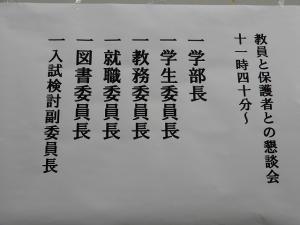 教員と保護者との懇談会
十一時四十分～
一学部長
一学生委員長
一教務委員長
一就職委員長
一図書委員長
一入試検討副委員長